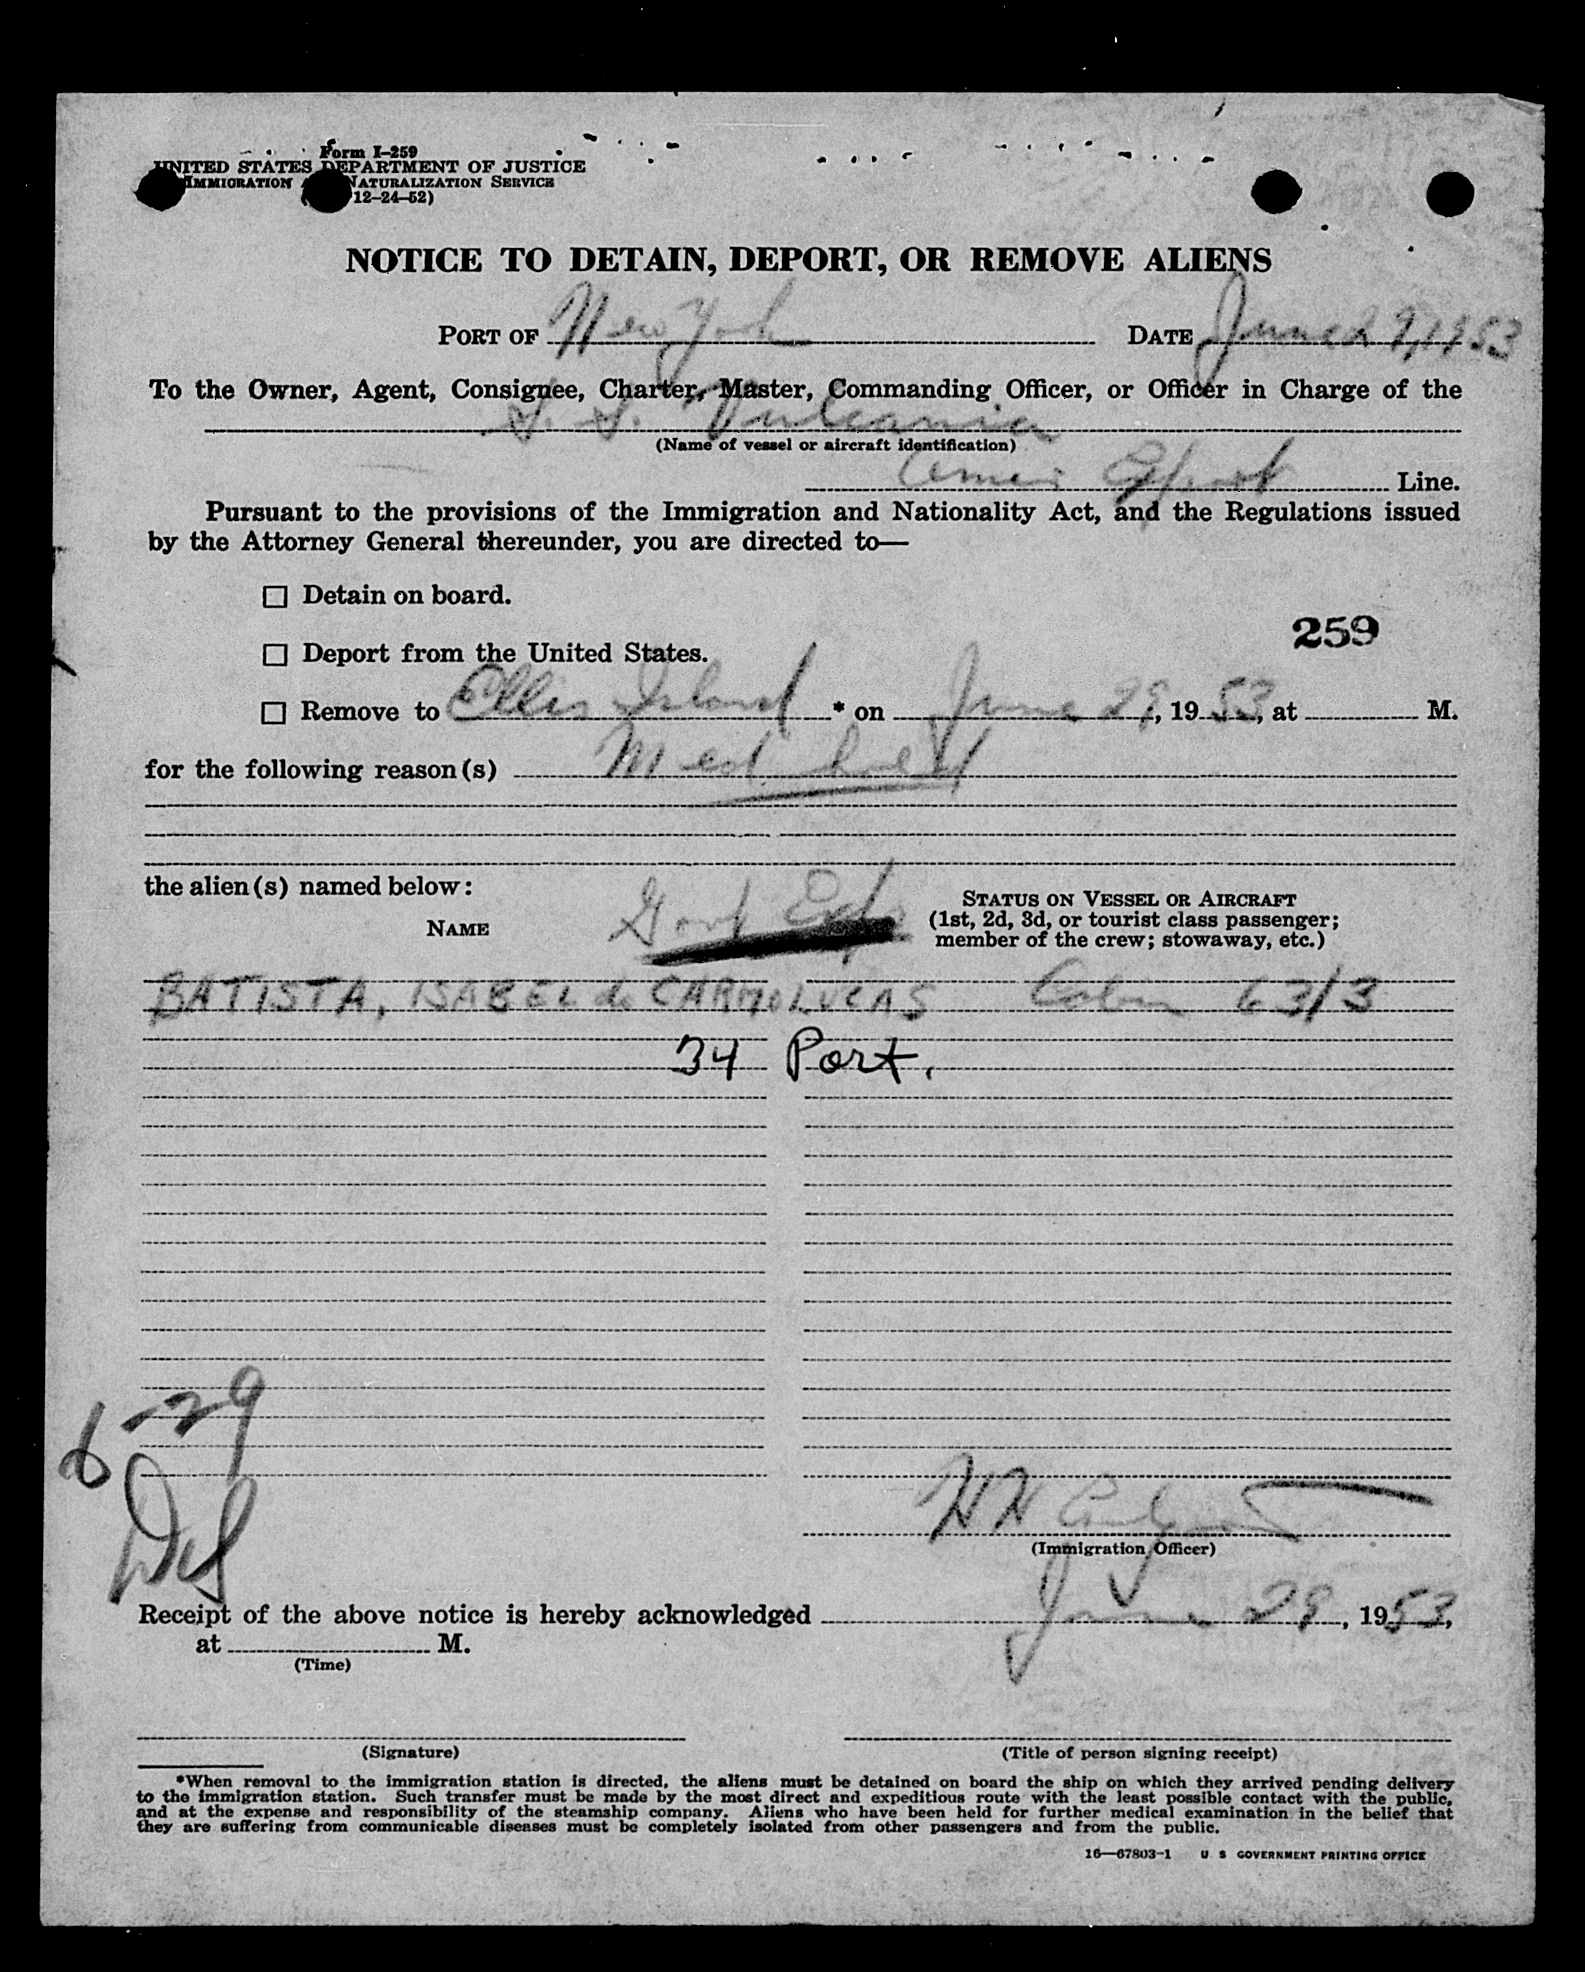 Form I-259
UNITED STATES DEPARTMENT OF JUSTICE
IMMIGRATION NATURALIZATION SERVICE
12-24-52)
NOTICE TO DETAIN, DEPORT, OR REMOVE ALIENS
PORT OF New York DATE June 29, 1953
To the Owner, Agent, Consignee, Charter, Master, Commanding Officer, or Officer in Charge of the
S. S. Vulcania
(Name of vessel or aircraft identification)
Amer Export Line.
Pursuant to the provisions of the Immigration and Nationality Act, and the Regulations issued
by the Attorney General thereunder, you are directed to—
☐ Detain on board.
259
☐ Deport from the United States.
☐ Remove to Ellis Island * on June 29, 1953, at M.
for the following reason(s) Med. hold
the alien(s) named below:
Govt Exp
NAME
STATUS ON VESSEL OR AIRCRAFT
(1st, 2d, 3d, or tourist class passenger;
member of the crew; stowaway, etc.)
BATISTA, ISABEL do CARMO LUCAS Cabin 63/3
34 Port.
6-29
(Immigration Officer)
Receipt of the above notice is hereby acknowledged June 29, 1953,
at M.
(Time)
(Signature) (Title of person signing receipt)
*When removal to the immigration station is directed, the aliens must be detained on board the ship on which they arrived pending delivery
to the immigration station. Such transfer must be made by the most direct and expeditious route with the least possible contact with the public,
and at the expense and responsibility of the steamship company. Aliens who have been held for further medical examination in the belief that
they are suffering from communicable diseases must be completely isolated from other passengers and from the public.
16—67803-1 U S GOVERNMENT PRINTING OFFICE